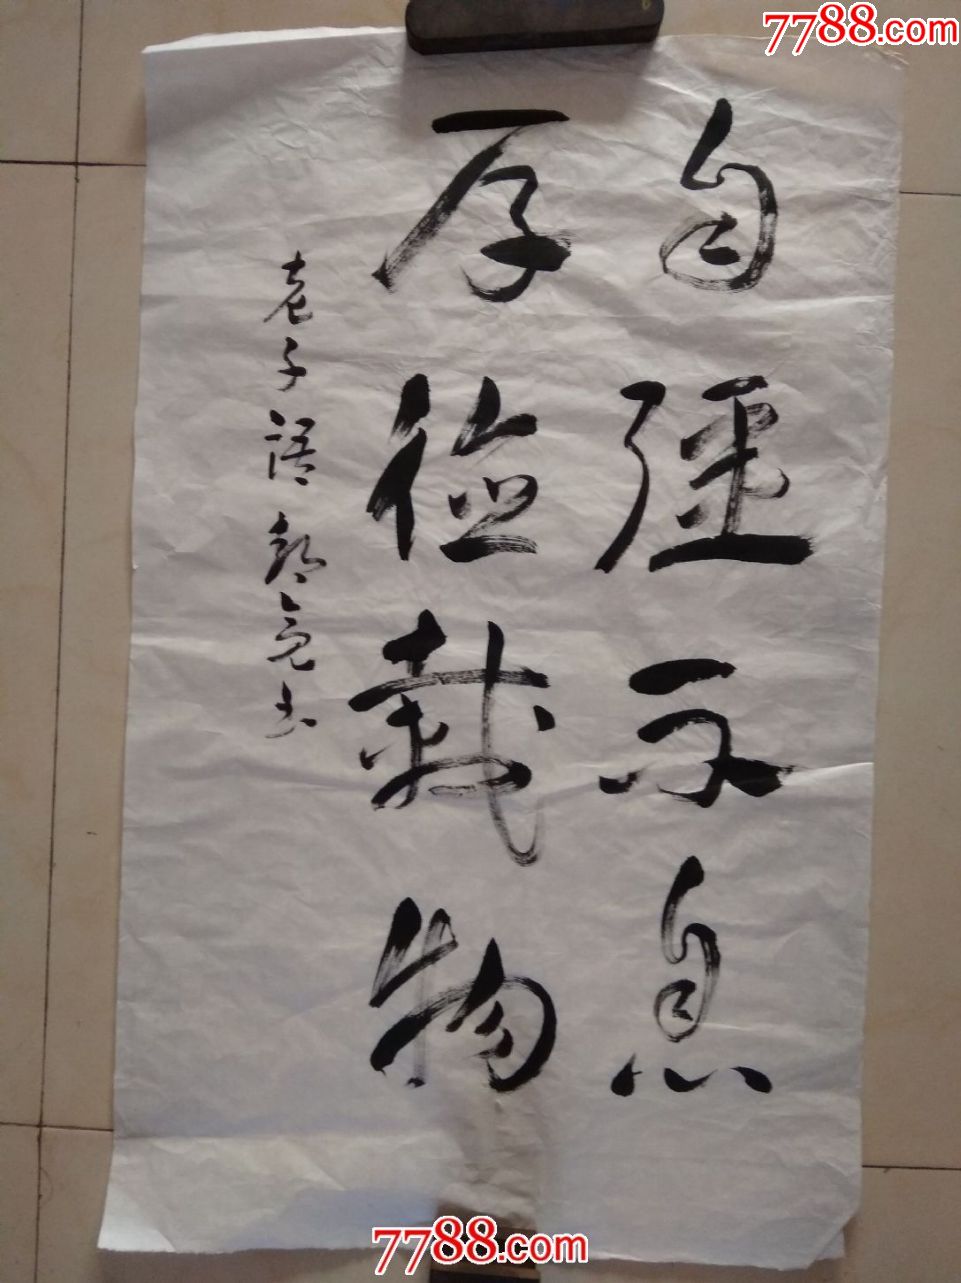 7788.com
自彊不息
厚德载物
老子语 彭亮书
7788.com